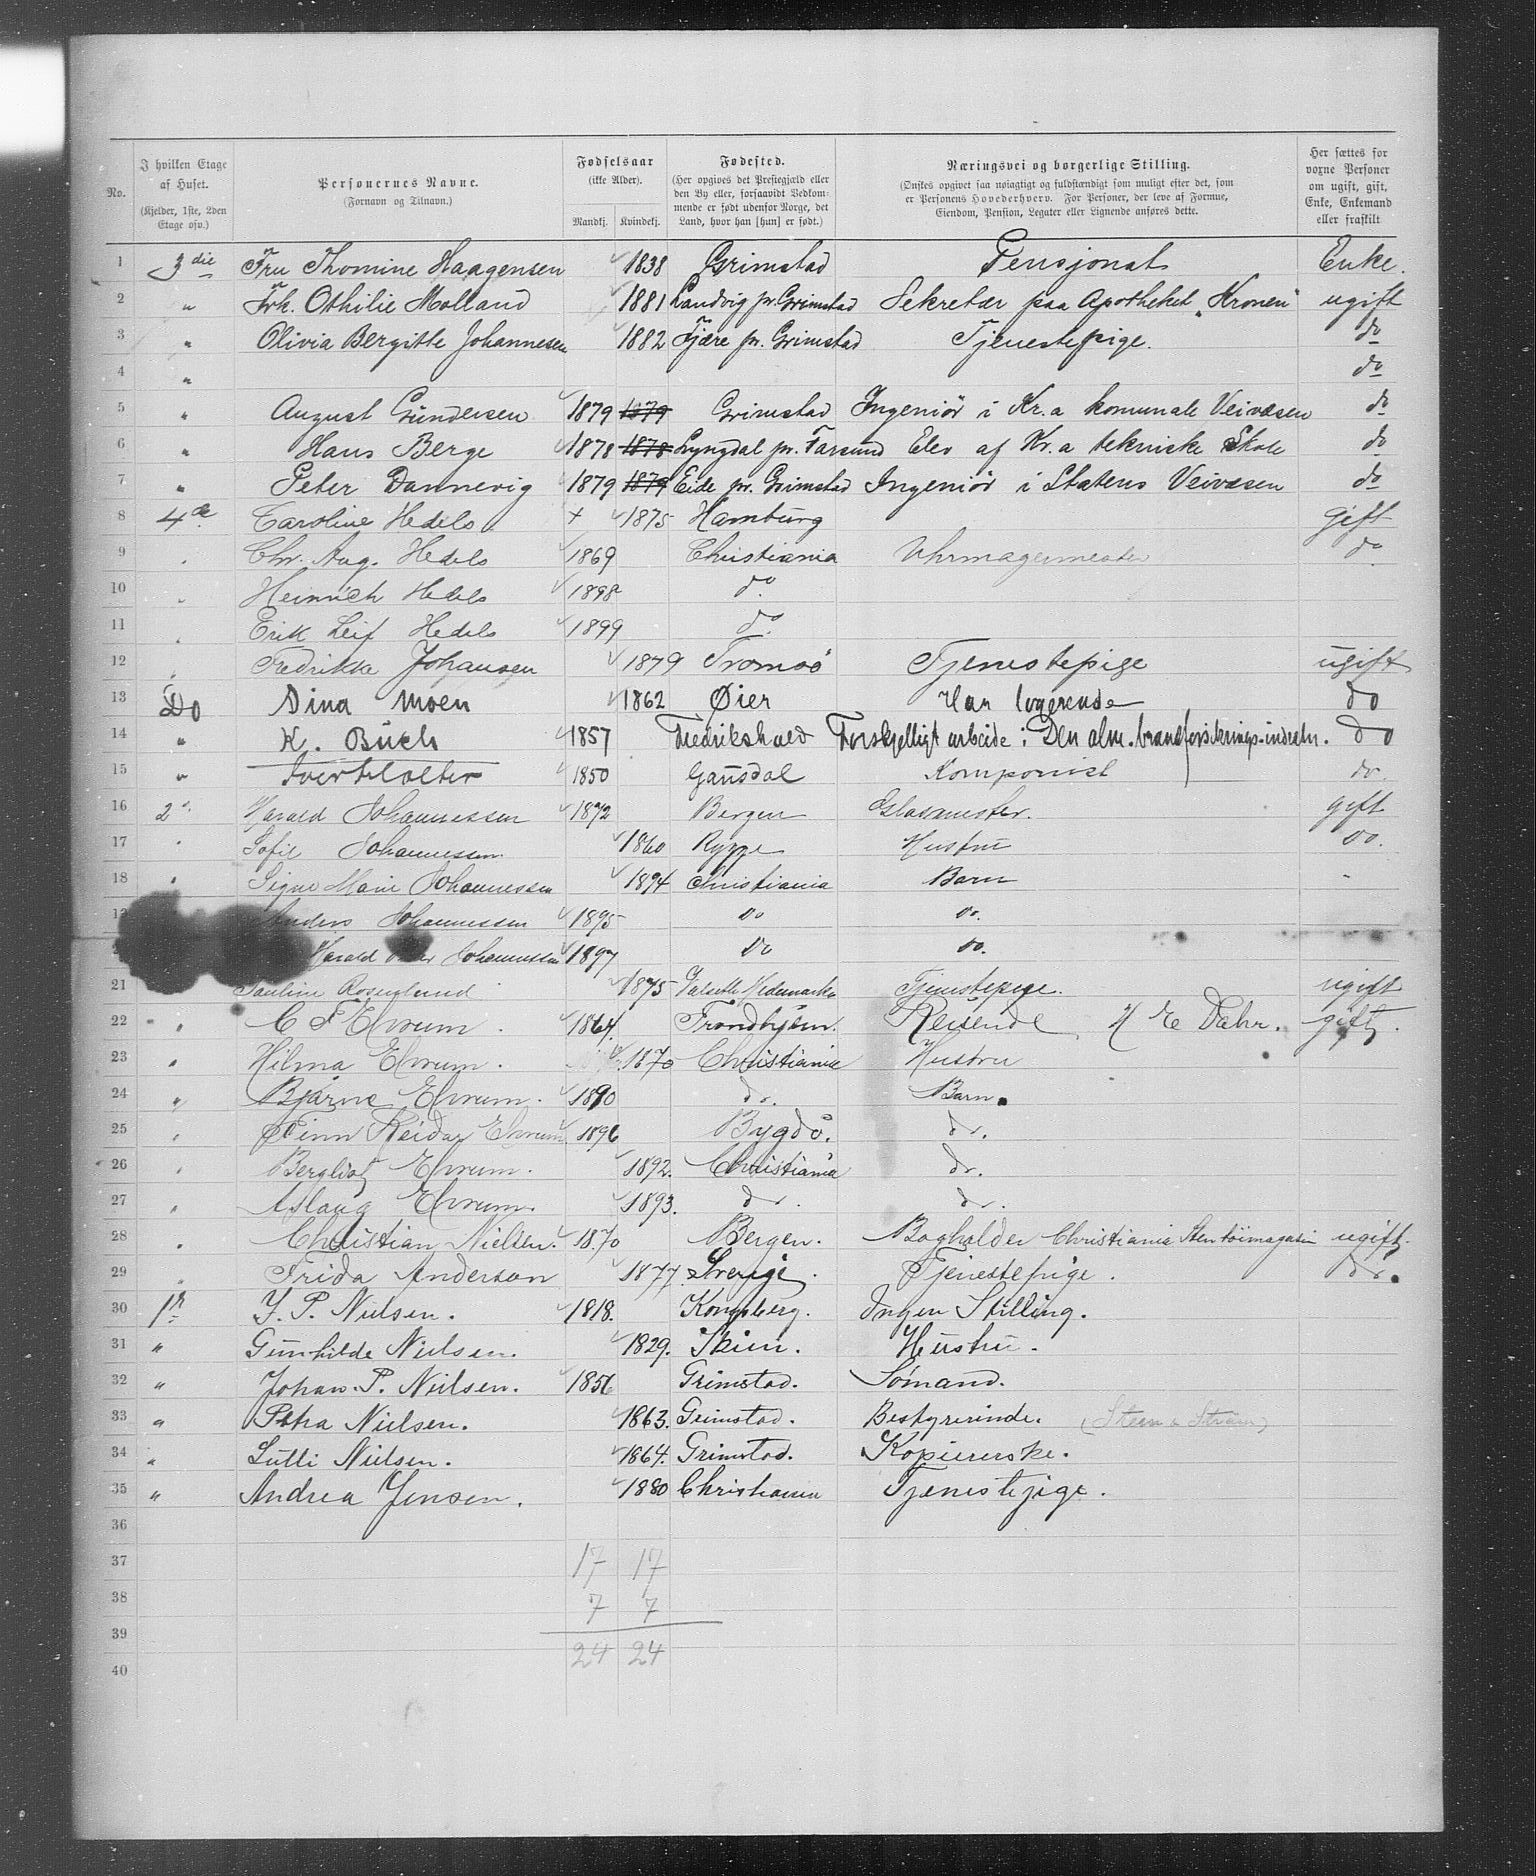 No.
I hvilken Etage af Huset. (Kjelder, 1ste, 2den Etage osv.)
Personernes Navne. (Fornavn og Tilnavn.)
Fødselsaar (ikke Alder). Mandkj. Kvindekj.
Fødested. (Her opgives det Prestegjæld eller den By eller, forsaavidt Vedkommende er født udenfor Norge, det Land, hvor han [hun] er født.)
Næringsvei og borgerlige Stilling. (Ønskes opgivet saa nøiagtigt og fuldstændigt som muligt efter det, som er Personens Hovederhverv. For Personer, der leve af Formue, Eiendom, Pension, Legater eller Lignende anføres dette.
Her sættes for voxne Personer om ugift, gift, Enke, Enkemand eller fraskilt
1 3die Fru Thomine Haagensen 1838 Grimstad Pensjonat Enke.
2 " Frk. Othilie Molland 1881 Landvig pr. Grimstad Sekretær paa Apotheket "Kronen" ugift
3 " Olivia Bergitte Johannesen 1882 Fjære pr. Grimstad Tjenestepige. do
4 " do
5 " August Gundersen 1879 1879 Grimstad Ingeniör i Kr.a komunale Veivæsen do
6 " Hans Berge 1878 1878 Lyngdal pr. Farsund Elev af Kr.a tekniske Skole do
7 " Peter Dannevig 1879 1879 Eide pr. Grimstad Ingeniör i Statens Veivæsen do
8 4de Caroline Hedels + 1875 Hamburg gift
9 " Chr. Aug. Hedels 1869 Christiania Uhrmagermester do
10 " Heinrich Hedels 1898 do.
11 " Erik Leif Hedels 1899 do.
12 " Fredrikke Johansen 1879 Tromsö Tjenestepige ugift
13 Do Dina Moen 1862 Øier Har logerende do
14 " K. Buch 1857 Fredrikshald Forskjelligt arbeide i Den alm. brandforsikrings-indretn. do
15 " 1850 Gausdal Komponist do.
16 2 Harald Johannessen 1872 Bergen Glasmester. gift
17 " Sofie Johannessen 1860 Rygge Hustru do.
18 " Signe Marie Johannessen 1894 Christiania Barn "
Anders Johannessen 1895 do do.
Harald Johannessen 1897 do do.
21 Pauline Rosenlund 1875 Hedemarken Tjenestepige. ugift
22 " C F Ehrum. 1864. Trondhjem. Reisende H E Dahr. gift.
23 " Hilma Ehrum. 1870 Christiania Hustru
24 " Bjarne Ehrum. 1890 do. Barn.
25 " Finn Reidar Ehrum 1896 Bygdö. do.
26 " Bergliot Ehrum. 1892. Christiania do.
27 " Aslaug Ehrum. 1893. do. do.
28 " Christian Nielsen. 1870 Bergen. Bogholder Christiania Stentöimagasin ugift.
29 " Frida Anderson 1877 Sverige. Tjenestepige. do.
30 1ste J. P. Nielsen. 1818. Kongsberg. Ingen Stilling.
31 " Gunhilde Nielsen. 1829. Skien. Hustru.
32 " Johan. P. Nielsen. 1856 Grimstad. Sömand.
33 " Petra Nielsen. 1863. Grimstad. Bestyrerinde. (Steen & Ström)
34 " Lulli Nielsen. 1864. Grimstad. Kopiererske.
35 " Andrea Jensen. 1880 Christiania Tjenestepige.
36
37 17 17
38 7 7
39 24 24
40